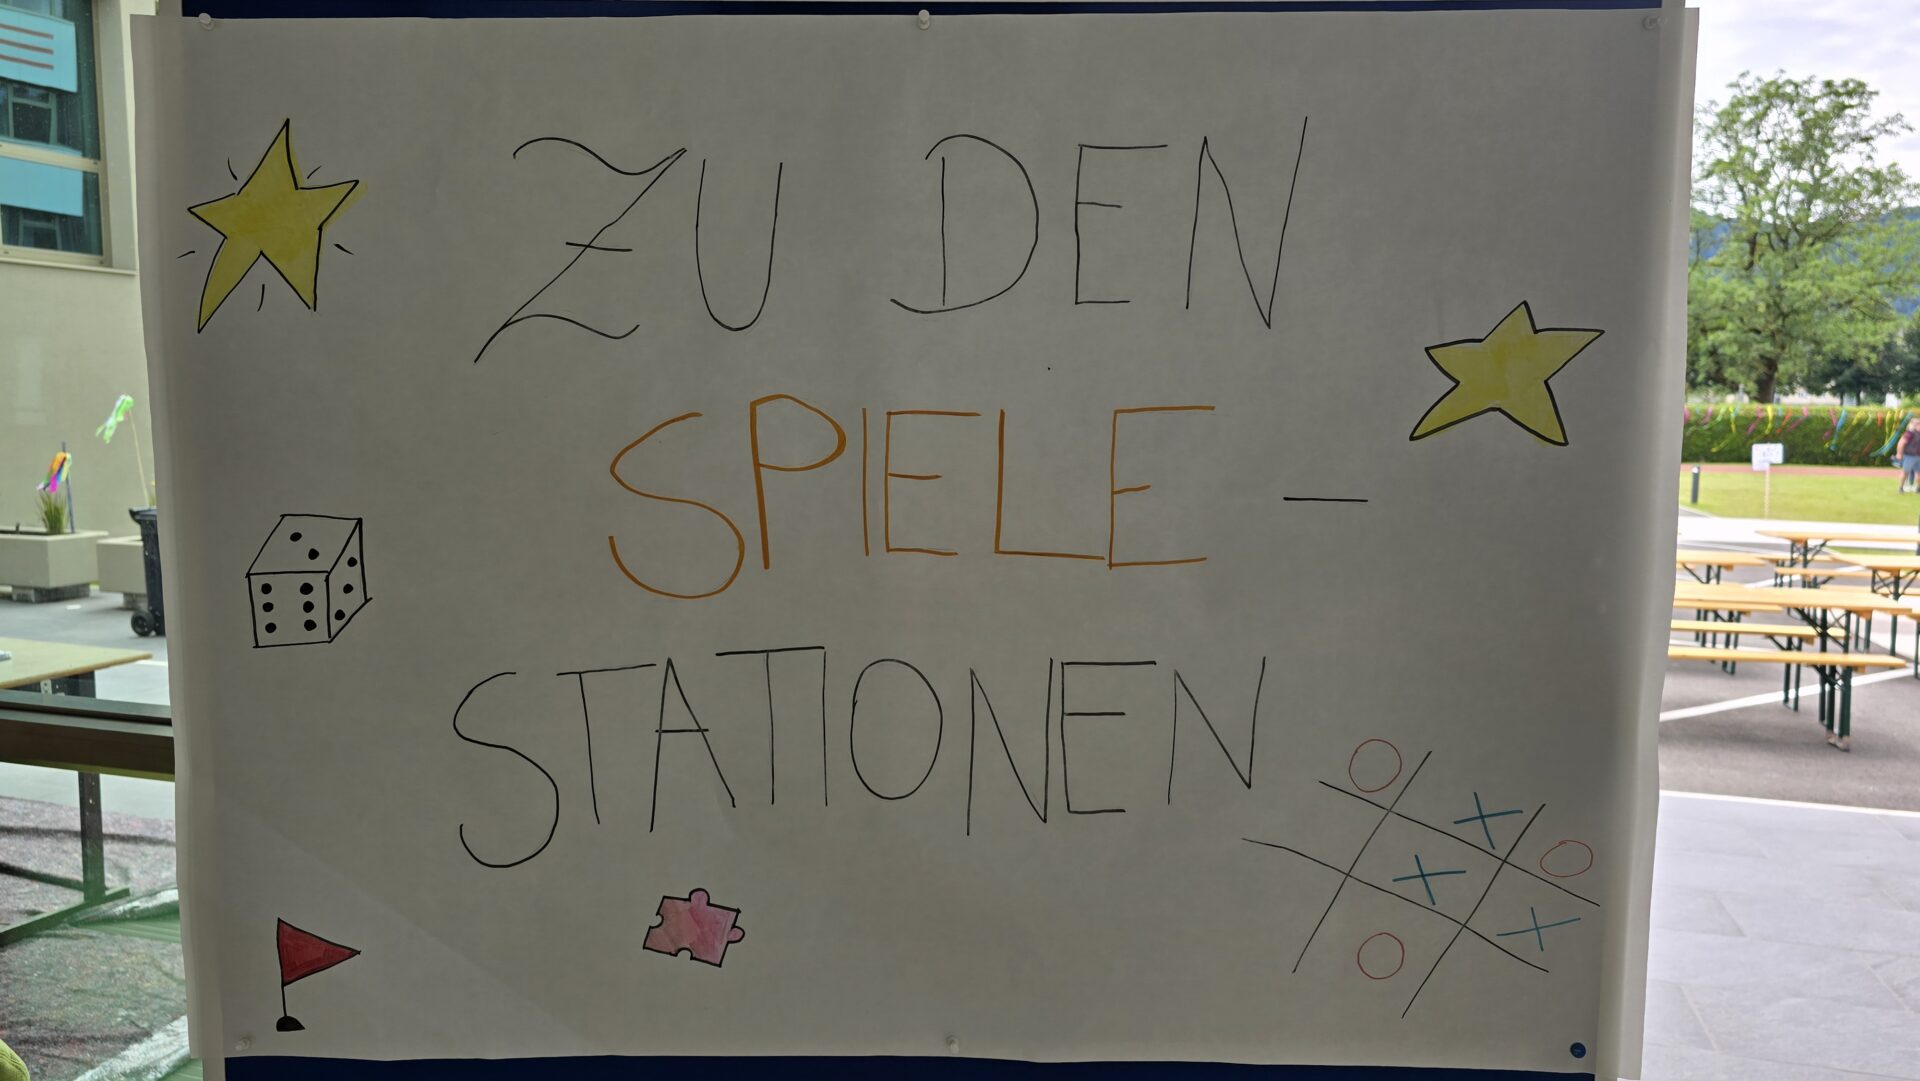 ZU DEN
SPIELE -
STATIONEN